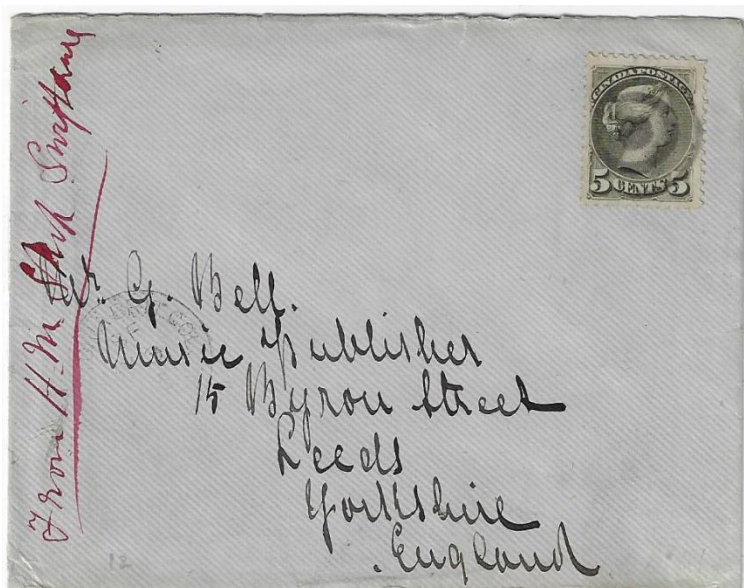 From H. M. Ship Swiftsure
CANADA POSTAGE
5 CENTS 5
Mr. G. Bell.
Music Publisher
15 Byron Street
Leeds
Yorkshire
England
12